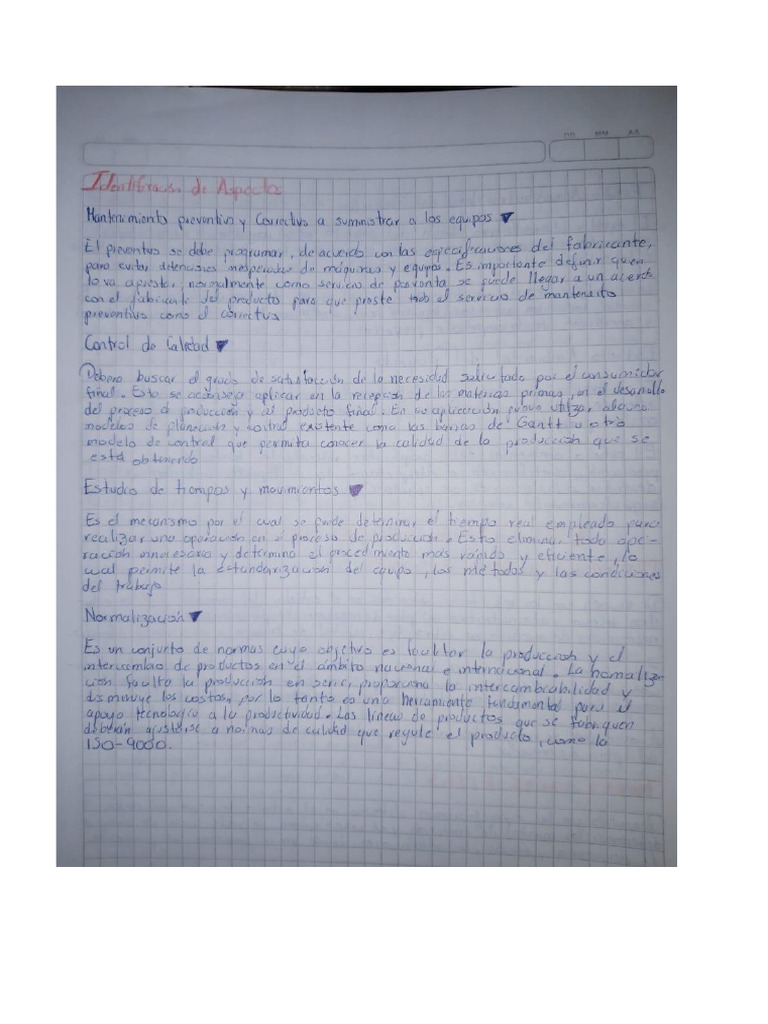 DD MM AA
Identificación de Aspectos
Mantenimiento preventivo y Correctivo a suministrar a los equipos
El preventivo se debe programar, de acuerdo con las especificaciones del fabricante,
para evitar detenciones inesperadas de máquinas y equipos. Es importante definir quien
lo va a prestar, normalmente como servicio de posventa se puede llegar a un acuerdo
con el fabricante del producto para que preste todo el servicio de mantenimiento
preventivo como el correctivo
Control de Calidad
Debera buscar el grado de satisfacción de la necesidad solicitada por el consumidor
final. Esto se aconseja aplicar en la recepción de las materias primas, en el desarrollo
del proceso de producción y al producto final. En su aplicación puede utilizar algunos
modelos de planeación y control existente como las barras de Gantt u otro
modelo de control que permita conocer la calidad de la producción que se
está obteniendo
Estudio de tiempos y movimientos
Es el mecanismo por el cual se puede determinar el tiempo real empleado para
realizar una operación en el proceso de producción. Esto elimina toda ope-
ración innecesaria y determina el procedimiento más rápido y eficiente, lo
cual permite la estandarización del equipo, los métodos y las condiciones
del trabajo
Normalización
Es un conjunto de normas cuyo objetivo es facilitar la producción y el
intercambio de productos en el ámbito nacional e internacional. La normaliza-
ción facilita la producción en serie, proporciona la intercambiabilidad y
disminuye los costos, por lo tanto es una herramienta fundamental para el
apoyo tecnologico a la productividad. Las líneas de productos que se fabriquen
deberán ajustarse a normas de calidad que regule el producto, como la
ISO-9000.